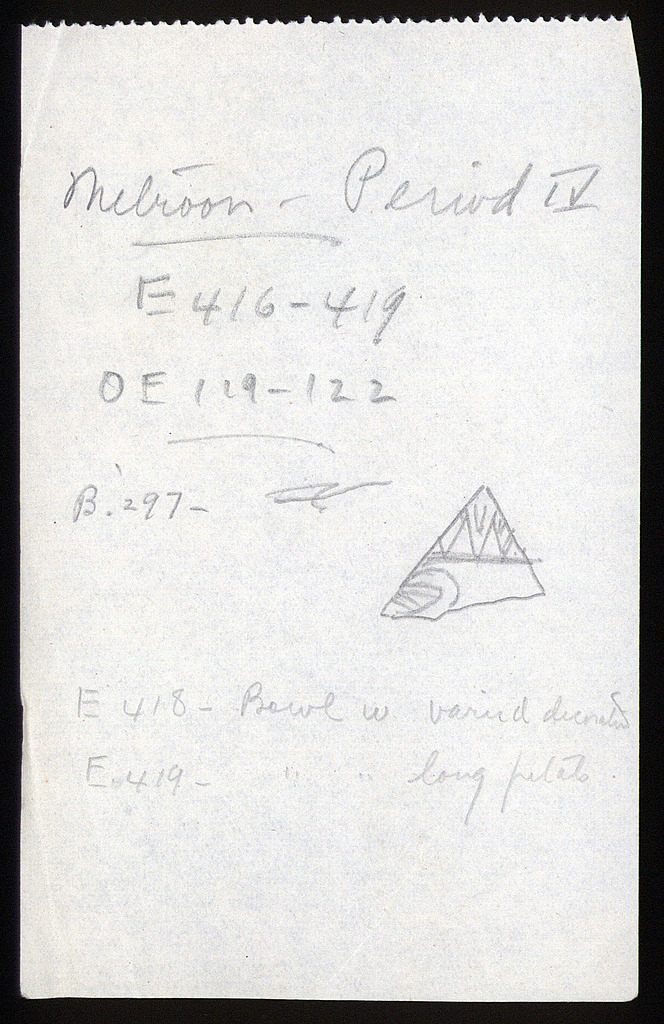 Metröon - Period IV
E 416-419
OE 119-122
B. 297-
E 418 - Bowl w. varied decoration
E. 419 - " " long petals.